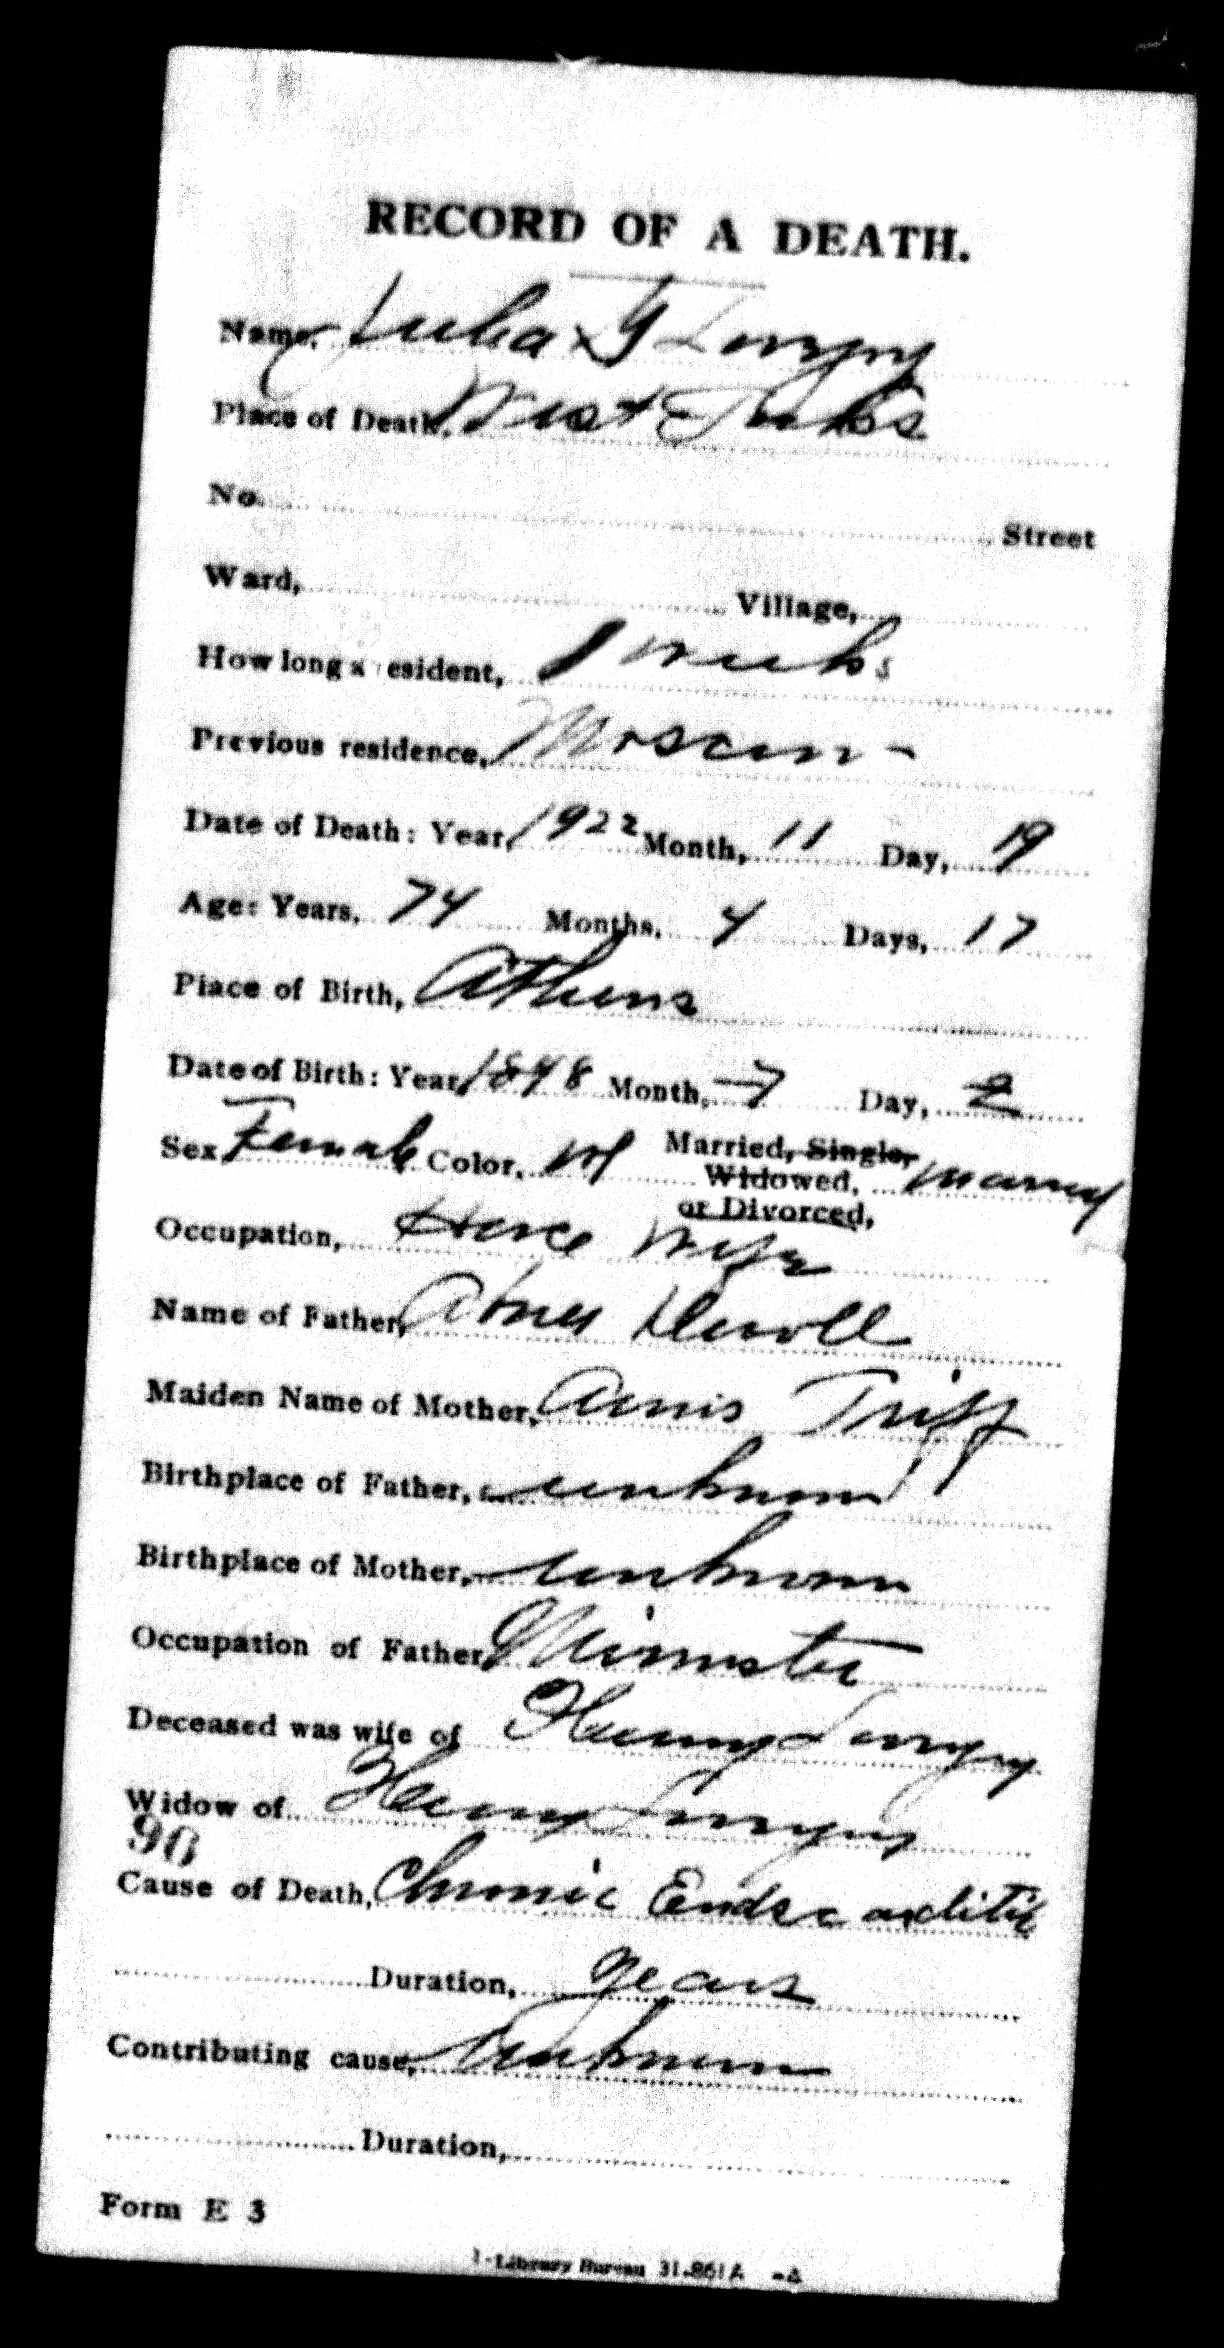 RECORD OF A DEATH.
Name, Julia G Longley
Place of Death, West Forks
No. Street
Ward, Village,
How long a resident, 8 weeks
Previous residence, Moscow
Date of Death: Year, 1922 Month, 11 Day, 19
Age: Years, 74 Months, 4 Days, 17
Place of Birth, Athens
Date of Birth: Year, 1848 Month, 7 Day, 2
Sex Female Color, W Married, Single, Widowed, or Divorced, married
Occupation, House wife
Name of Father, Abner
Maiden Name of Mother, Annis Tripp
Birthplace of Father, unknown
Birthplace of Mother, unknown
Occupation of Father, Minister
Deceased was wife of Henry Longley
Widow of Henry Longley
90
Cause of Death, Chronic Endocarditis
Duration, years
Contributing cause, unknown
Duration,
Form E 3
Library Bureau 31-861A